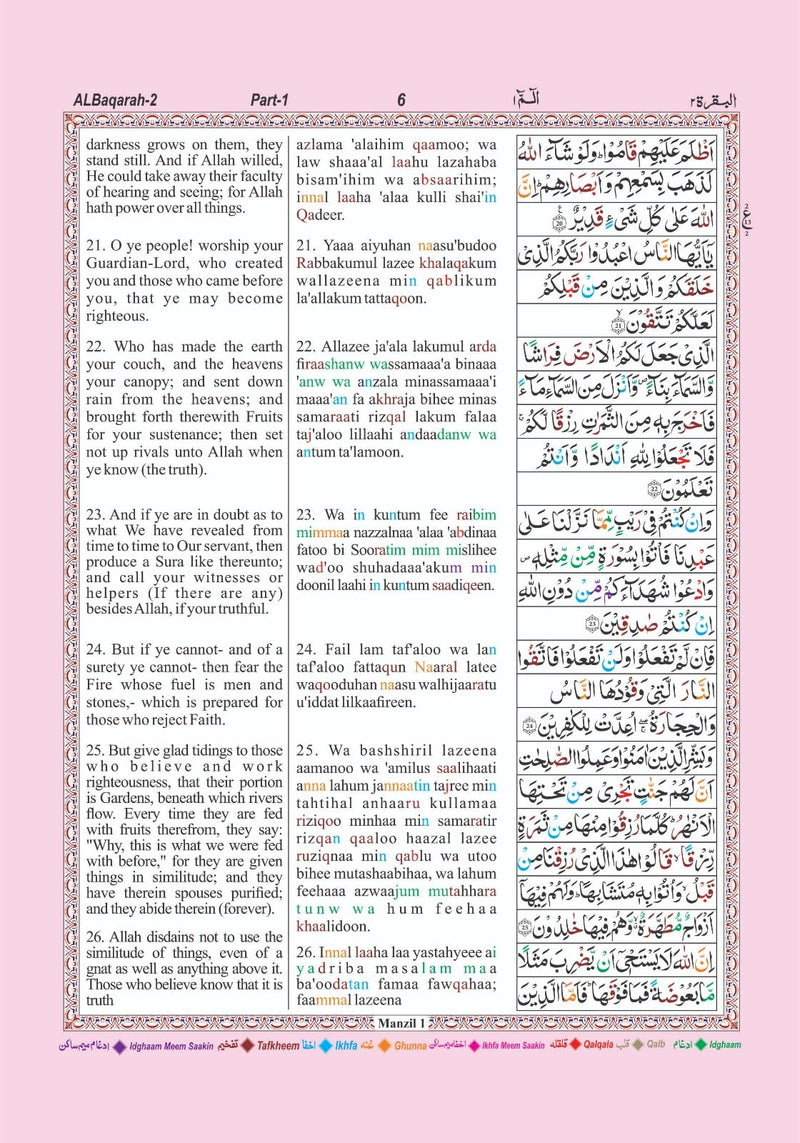 ALBaqarah-2 Part-1 6 الٓمّٓ ١ البقرة ٢
darkness grows on them, they
stand still. And if Allah willed,
He could take away their faculty
of hearing and seeing; for Allah
hath power over all things.
21. O ye people! worship your
Guardian-Lord, who created
you and those who came before
you, that ye may become
righteous.
22. Who has made the earth
your couch, and the heavens
your canopy; and sent down
rain from the heavens; and
brought forth therewith Fruits
for your sustenance; then set
not up rivals unto Allah when
ye know (the truth).
23. And if ye are in doubt as to
what We have revealed from
time to time to Our servant, then
produce a Sura like thereunto;
and call your witnesses or
helpers (If there are any)
besides Allah, if your truthful.
24. But if ye cannot- and of a
surety ye cannot- then fear the
Fire whose fuel is men and
stones,- which is prepared for
those who reject Faith.
25. But give glad tidings to those
who believe and work
righteousness, that their portion
is Gardens, beneath which rivers
flow. Every time they are fed
with fruits therefrom, they say:
"Why, this is what we were fed
with before," for they are given
things in similitude; and they
have therein spouses purified;
and they abide therein (forever).
26. Allah disdains not to use the
similitude of things, even of a
gnat as well as anything above it.
Those who believe know that it is
truth
azlama 'alaihim qaamoo; wa
law shaaa'al laahu lazahaba
bisam'ihim wa absaarihim;
innal laaha 'alaa kulli shai'in
Qadeer.
21. Yaaa aiyuhan naasu'budoo
Rabbakumul lazee khalaqakum
wallazeena min qablikum
la'allakum tattaqoon.
22. Allazee ja'ala lakumul arda
firaashanw wassamaaa'a binaaa
'anw wa anzala minassamaaa'i
maaa'an fa akhraja bihee minas
samaraati rizqal lakum falaa
taj'aloo lillaahi andaadanw wa
antum ta'lamoon.
23. Wa in kuntum fee raibim
mimmaa nazzalnaa 'alaa 'abdinaa
fatoo bi Sooratim mim mislihee
wad'oo shuhadaaa'akum min
doonil laahi in kuntum saadiqeen.
24. Fail lam taf'aloo wa lan
taf'aloo fattaqun Naaral latee
waqooduhan naasu walhijaaratu
u'iddat lilkaafireen.
25. Wa bashshiril lazeena
aamanoo wa 'amilus saalihaati
anna lahum jannaatin tajree min
tahtihal anhaaru kullamaa
riziqoo minhaa min samaratir
rizqan qaaloo haazal lazee
ruziqnaa min qablu wa utoo
bihee mutashaabihaa, wa lahum
feehaaa azwaajum mutahhara
tunw wa hum feehaa
khaalidoon.
26. Innal laaha laa yastahyeee ai
yadriba masalam maa
ba'oodatan famaa fawqahaa;
faammal lazeena
اَظْلَمَ عَلَيْهِمْ قَامُوْا ؕ وَلَوْ شَآءَ اللّٰهُ
لَذَهَبَ بِسَمْعِهِمْ وَاَبْصَارِهِمْ ؕ اِنَّ
اللّٰهَ عَلٰى كُلِّ شَىْءٍ قَدِيْرٌ ﴿20﴾
يٰۤاَيُّهَا النَّاسُ اعْبُدُوْا رَبَّكُمُ الَّذِىْ
خَلَقَكُمْ وَالَّذِيْنَ مِنْ قَبْلِكُمْ
لَعَلَّكُمْ تَتَّقُوْنَ ﴿21﴾
الَّذِىْ جَعَلَ لَكُمُ الْاَرْضَ فِرَاشًا
وَّالسَّمَآءَ بِنَآءً ۪ وَّاَنْزَلَ مِنَ السَّمَآءِ مَآءً
فَاَخْرَجَ بِهٖ مِنَ الثَّمَرٰتِ رِزْقًا لَّكُمْ ۚ
فَلَا تَجْعَلُوْا لِلّٰهِ اَنْدَادًا وَّاَنْتُمْ
تَعْلَمُوْنَ ﴿22﴾
وَاِنْ كُنْتُمْ فِىْ رَيْبٍ مِّمَّا نَزَّلْنَا عَلٰى
عَبْدِنَا فَاْتُوْا بِسُوْرَةٍ مِّنْ مِّثْلِهٖ ۪
وَادْعُوْا شُهَدَآءَكُمْ مِّنْ دُوْنِ اللّٰهِ
اِنْ كُنْتُمْ صٰدِقِيْنَ ﴿23﴾
فَاِنْ لَّمْ تَفْعَلُوْا وَلَنْ تَفْعَلُوْا فَاتَّقُوا
النَّارَ الَّتِىْ وَقُوْدُهَا النَّاسُ
وَالْحِجَارَةُ ۖۚ اُعِدَّتْ لِلْكٰفِرِيْنَ ﴿24﴾
وَبَشِّرِ الَّذِيْنَ اٰمَنُوْا وَعَمِلُوا الصّٰلِحٰتِ
اَنَّ لَهُمْ جَنّٰتٍ تَجْرِىْ مِنْ تَحْتِهَا
الْاَنْهٰرُ ؕ كُلَّمَا رُزِقُوْا مِنْهَا مِنْ ثَمَرَةٍ
رِّزْقًا ۙ قَالُوْا هٰذَا الَّذِىْ رُزِقْنَا مِنْ
قَبْلُ ۙ وَاُتُوْا بِهٖ مُتَشَابِهًا ؕ وَلَهُمْ فِيْهَاۤ
اَزْوَاجٌ مُّطَهَّرَةٌ ۙ وَّهُمْ فِيْهَا خٰلِدُوْنَ ﴿25﴾
اِنَّ اللّٰهَ لَا يَسْتَحْىٖۤ اَنْ يَّضْرِبَ مَثَلًا
مَّا بَعُوْضَةً فَمَا فَوْقَهَا ؕ فَاَمَّا الَّذِيْنَ
Manzil 1
ادغام میم ساکن Idghaam Meem Saakin تفخیم Tafkheem اخفا Ikhfa غنه Ghunna اخفا میم ساکن Ikhfa Meem Saakin قلقله Qalqala قلب Qalb ادغام Idghaam